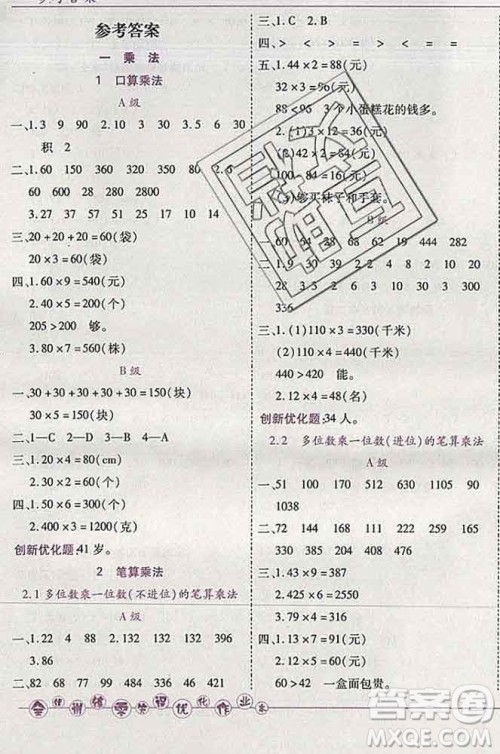 参考答案
一 乘 法
1 口算乘法
A 级
一、1.3 9 90 2.10 3 30 3.5 6 30
积 2
二、1.18 60 150 80 2.6
60 600 280
3.27 57 51 0
三、20+20+20=60(袋)
20×3=60(袋)
四、1.60×9=540(元)
2.40×5=200(个)
205>200 够。
3.80×7=560(株)
B 级
一、30+30+30+30+30=150(块)
30×5=150(块)
二、1—C 2—A 3—D 4—B
三、1.20×4=80(cm)
2.200×6=1200(个)
四、1.20×4=80(张)
2.400×3=1200(克)
创新优化题:41岁。
2 笔算乘法
2.1 多位数乘一位数(不进位)的笔算乘法
A 级
一、1.22 4 88 2.132 132 4 396
3.86
二、82 68 96 936 848 999
三、1.C 2.B
四、> < = > < =
五、1.44×2=88(元)
32×3=96(元)
88<96 3个小蛋糕花的钱多。
2.(1)3×12=36(元)
(2)42×2=84(元)
100-84=16(元)
够买袜子和手套。
B 级
一、60 54 128 440 444 282
二、1.9 30 39 20
108 3 5 6 328 3 2 8
336
三、1.(1)110×3=330(千米)
(2)110×4=440(千米)
440>410 能。
2.12×4=48(名)
创新优化题:34人。
2.2 多位数乘一位数(进位)的笔算乘法
A 级
一、51 100 170 512 610 1105 90
1038
二、72 124 186 258 192 378
330 384 678
三、1.24×6=144
2.425×6=2550
3.79×4=316
四、1.79×4=316(元)
2.12×5=60(元)
60>42 一盒面包贵。
优化作业
答案圈
MXQE.COM